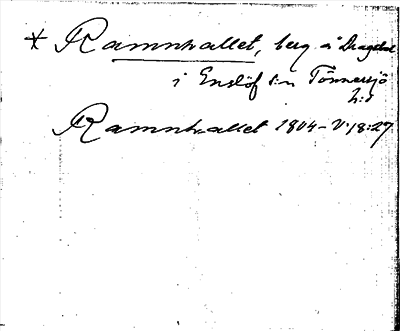 * Ramnhallet, berg å Dragered
i Enslöf s:n Tönnersjö
h:d
Ramnhallet 1804 - V:18:27